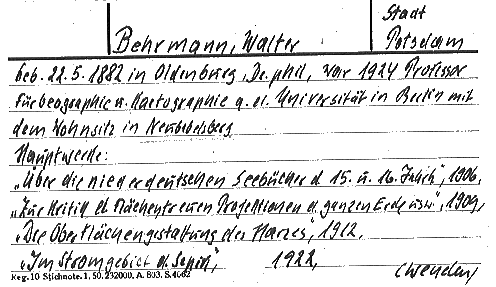 Stadt
Behrmann, Walter Potsdam
geb. 22.5.1882 in Oldenburg, Dr. phil, war 1924 Professor
für Geographie u. Kartographie a. d. Universität in Berlin mit
dem Wohnsitz in Neubabelsberg
Hauptwerke:
"Über die niederdeutschen Seebücher d. 15. u. 16. Jahrh", 1906,
"Zur Kritik d. flächentreuen Projektionen d. ganzen Erde usw", 1909,
"Die Oberflächengestaltung des Harzes", 1912,
"Im Stromgebiet d. Sepik", 1922,
Reg. 10 Stichnote. 1, 50. 232000, A. 803. S. 4062